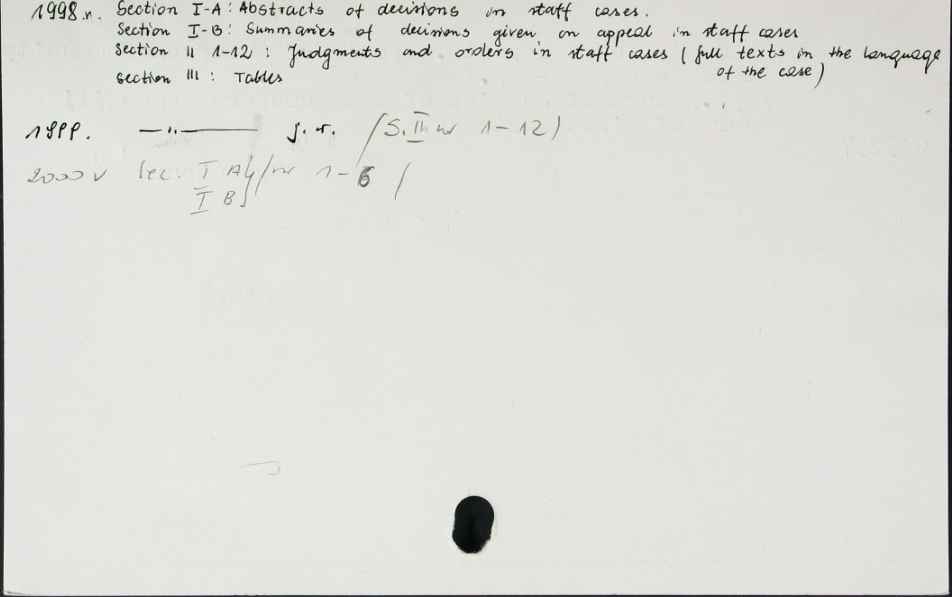 1998 r. Section I-A : Abstracts of decisions in staff cases.
Section I-B : Summaries of decisions given on appeal in staff cases
Section II 1-12 : Judgments and orders in staff cases ( full texts in the language
of the case )
Section III : Tables
1999. —"— j. w. (S. II nr 1-12)
2000 Sec. I A / nr 1-6 /
I B